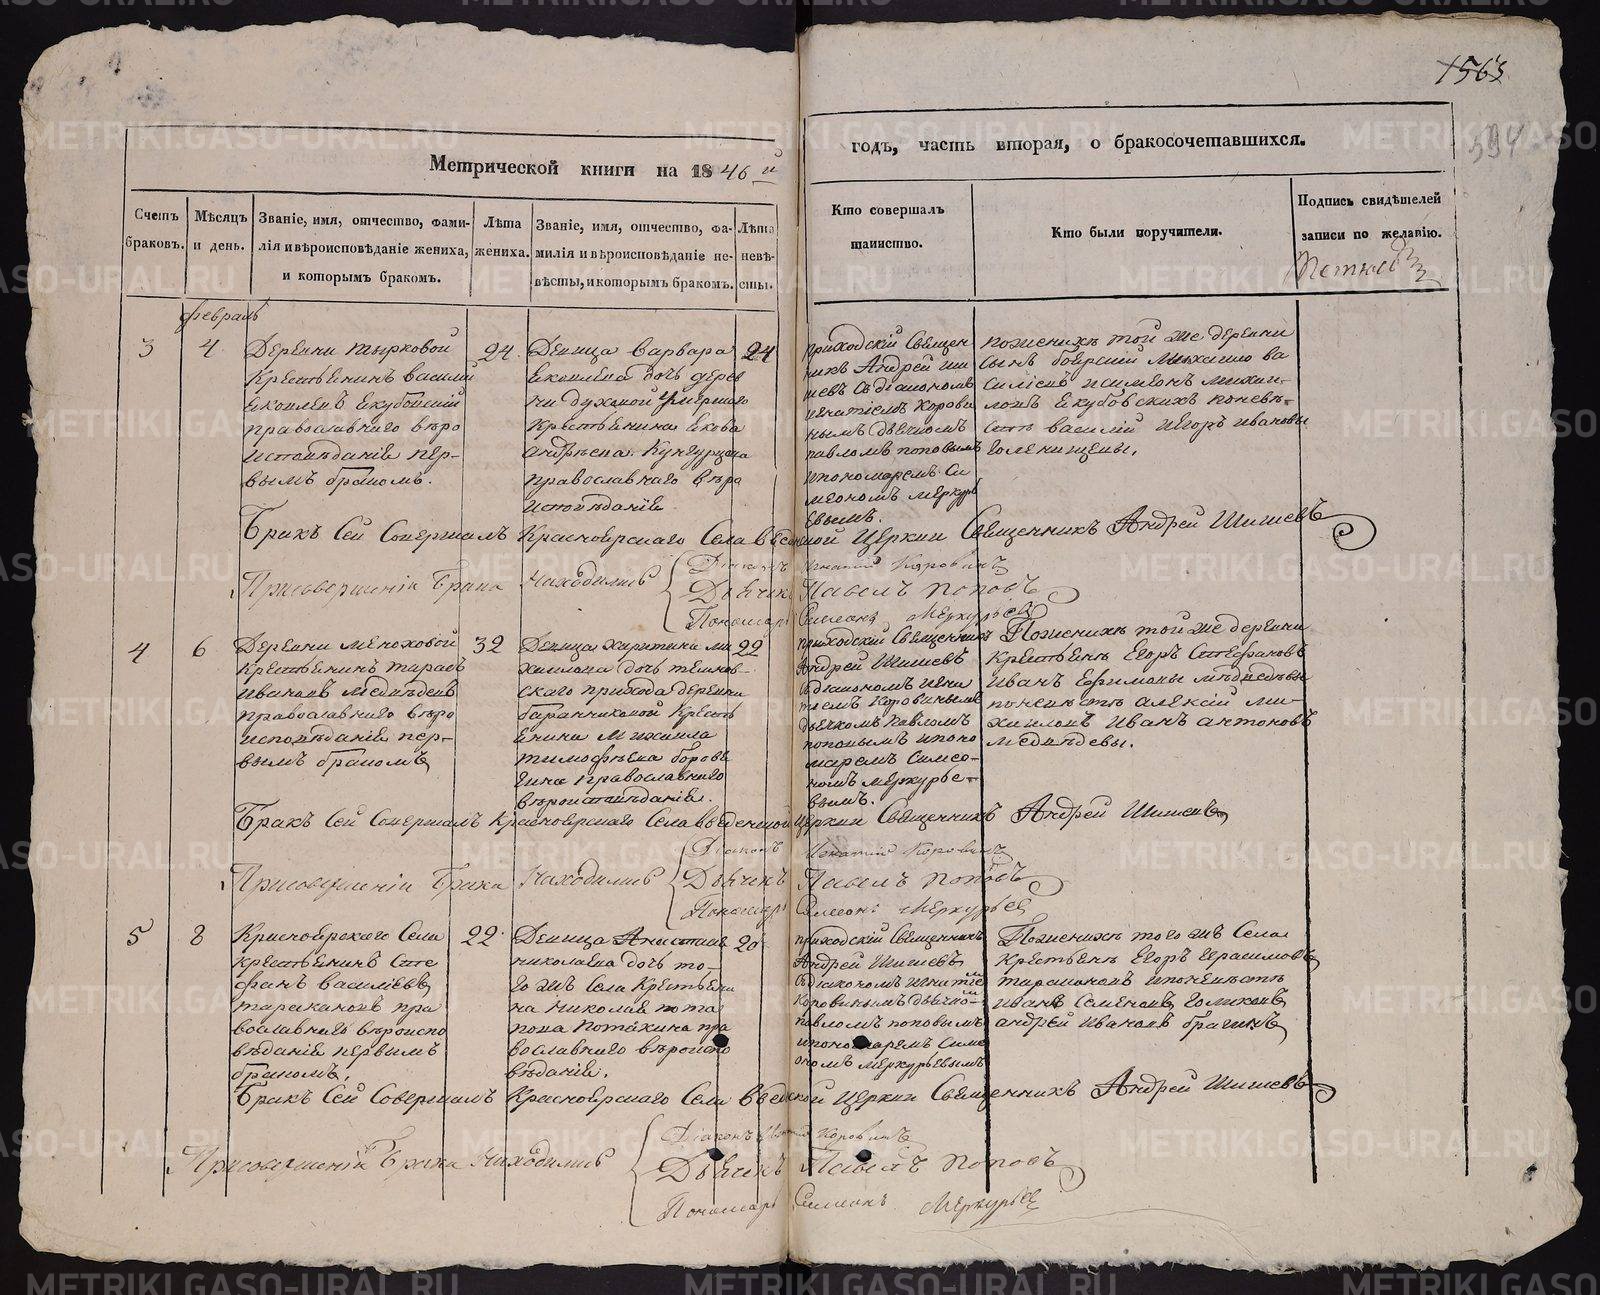 1563
594
Метрической книги на 1846 й
годъ, часть вторая, о бракосочетавшихся.
Счетъ браковъ.
Мѣсяцъ и день.
Званіе, имя, отчество, фами-
лія и вѣроисповѣданіе жениха,
и которымъ бракомъ.
Лѣта жениха.
Званіе, имя, отчество, фа-
милія и вѣроисповѣданіе не-
вѣсты, и которымъ бракомъ.
Лѣта невѣ-
сты.
Кто совершалъ
таинство.
Кто были поручители.
Подпись свидѣтелей
записи по желанію.
февраль
3
4
Деревни тырковой
Крестьянинъ василий
православнаго вѣро
исповѣданія пер-
вымъ бракомъ.
24
Девица варвара
Яковлева дочь дерев
ни духовой умершаго
Крестьянина Якова
андрѣева Кунгурцова
православнаго вѣро
исповѣданія
24
приходскій Священ
никъ Андрей Ши
шевъ съ діакономъ
игнатіемъ Корови
нымъ дьячкомъ
павломъ поповымъ
ипономаремъ Си
меономъ меркурь
евымъ.
поженихѣ той же деревни
василий Иегоръ ивановы
голенищевы.
Бракъ Сей Совершалъ Красноярскаго Села введенской Церкви Священникъ Андрей Шишевъ
Присовершеніи Брака Находились
Діаконъ Игнатий Коровинъ
Дьячекъ Павелъ Поповъ
Пономарь Симеонъ Меркурьев
4
6
Крестьянинъ тарасъ
ивановъ медведевъ
православнаго вѣро
исповѣданія пер-
вымъ бракомъ
32
Девица харитина ми
хаилова дочь темнов-
скаго прихода деревни
баранниковой Кресть
янина Михаила
тимофѣева борови
гина православнаго
вѣроисповѣданія.
22
приходскій Священникъ
Андрей Шишевъ
съдіакономъ игна
тіемъ Коровинымъ
дьячкомъ павломъ
поповымъ ипоно
маремъ Симео-
номъ меркурье-
вымъ.
Поженихѣ той же деревни
Крестьяня Егоръ Стефановъ
Иванъ Ефимовы мѣдведевы
поневѣстѣ алексій ми-
хаиловъ Иванъ антоновъ
медвѣдевы.
Бракъ Сей Совершалъ Красноярскаго Села введенской Церкви Священникъ Андрей Шишевъ
Присовершеніи Брака Находились
Діаконъ Игнатий Коровинъ
Дьячекъ Павелъ Поповъ
Пономарь Симеонъ Меркурьев
5
8
Красноярскаго Села
крестьянинъ Сте
фанъ василіевъ
таракановъ пра
вославнаго вѣроиспо
вѣданія первымъ
бракомъ.
22
Девица Анастасія
николаева дочь то-
го жъ Села Крестьяни
на николая пота
пова Потахина пра
вославнаго вѣроиспо
вѣданія.
20
приходскій Священникъ
Андрей Шишевъ
съдіакономъ игнатіем
Коровинымъ дьячко-м
павломъ поповымъ
ипономаремъ Симе
ономъ меркурьевымъ
Поженихѣ того жъ Села
Крестьяня Егоръ Герасимовъ
таракановъ ипоневѣстѣ
иванъ Семеновъ голиковъ
андрей Ивановъ брагинъ
Бракъ Сей Совершалъ Красноярскаго Села введенской Церкви Священникъ Андрей Шишевъ
Присовершеніи Брака Находились
Діаконъ Игнатий Коровинъ
Дьячекъ Павелъ Поповъ
Пономарь Симеонъ Меркурьев
METRIKI.GASO-URAL.RU